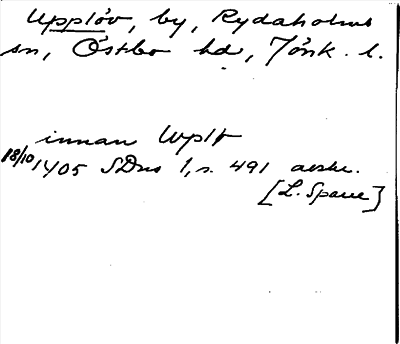 Upplöv, by, Rydaholms
sn, Östbo hd, Jönk. l.
innan Uplt
18/10 1405 SDns 1, s. 491 avskr.
[L. Spare]